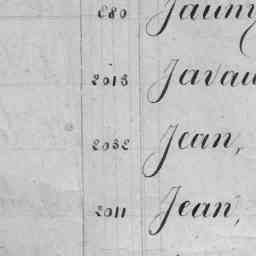 880 Jauny
2013 Javau
2032 Jean,
2011 Jean,